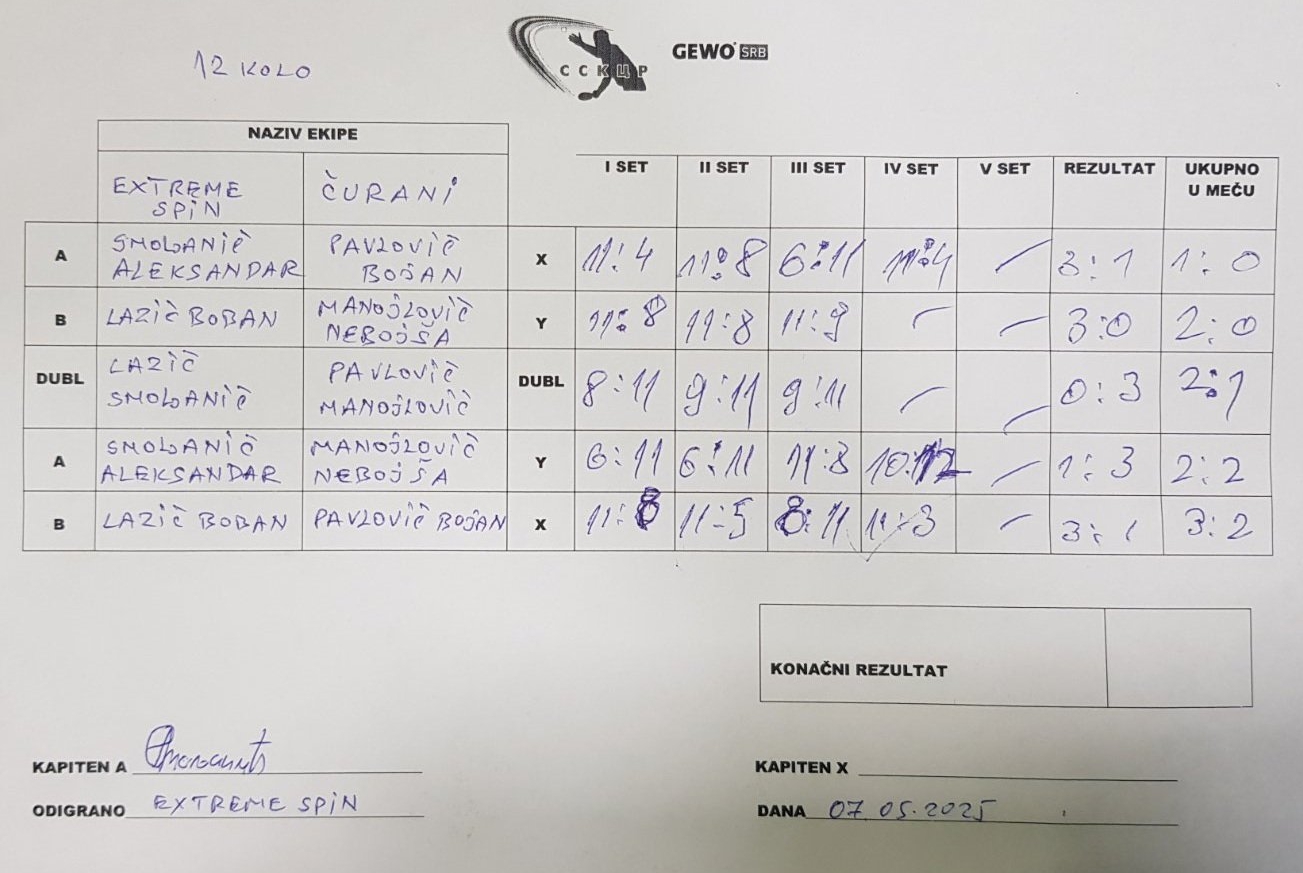 12 KOLO
ССКЦР
GEWO SRB
NAZIV EKIPE
I SET II SET III SET IV SET V SET REZULTAT UKUPNO
U MEČU
EXTREME
SPIN
ČURANI
A
SMOLJANIĆ
ALEKSANDAR
PAVLOVIĆ
BOJAN
X 11:4 11:8 6:11 11:4 / 3:1 1:0
B
LAZIĆ BOBAN
MANOJLOVIĆ
NEBOJŠA
Y 11:8 11:8 11:9 / / 3:0 2:0
DUBL
LAZIĆ
SMOLJANIĆ
PAVLOVIĆ
MANOJLOVIĆ
DUBL 8:11 9:11 9:11 / / 0:3 2:1
A
SMOLJANIĆ
ALEKSANDAR
MANOJLOVIĆ
NEBOJŠA
Y 6:11 6:11 11:8 10:12 / 1:3 2:2
B
LAZIĆ BOBAN
PAVLOVIĆ BOJAN
X 11:8 11:5 8:11 11:3 / 3:1 3:2
KONAČNI REZULTAT
KAPITEN A
KAPITEN X
ODIGRANO EXTREME SPIN
DANA 07.05.2025